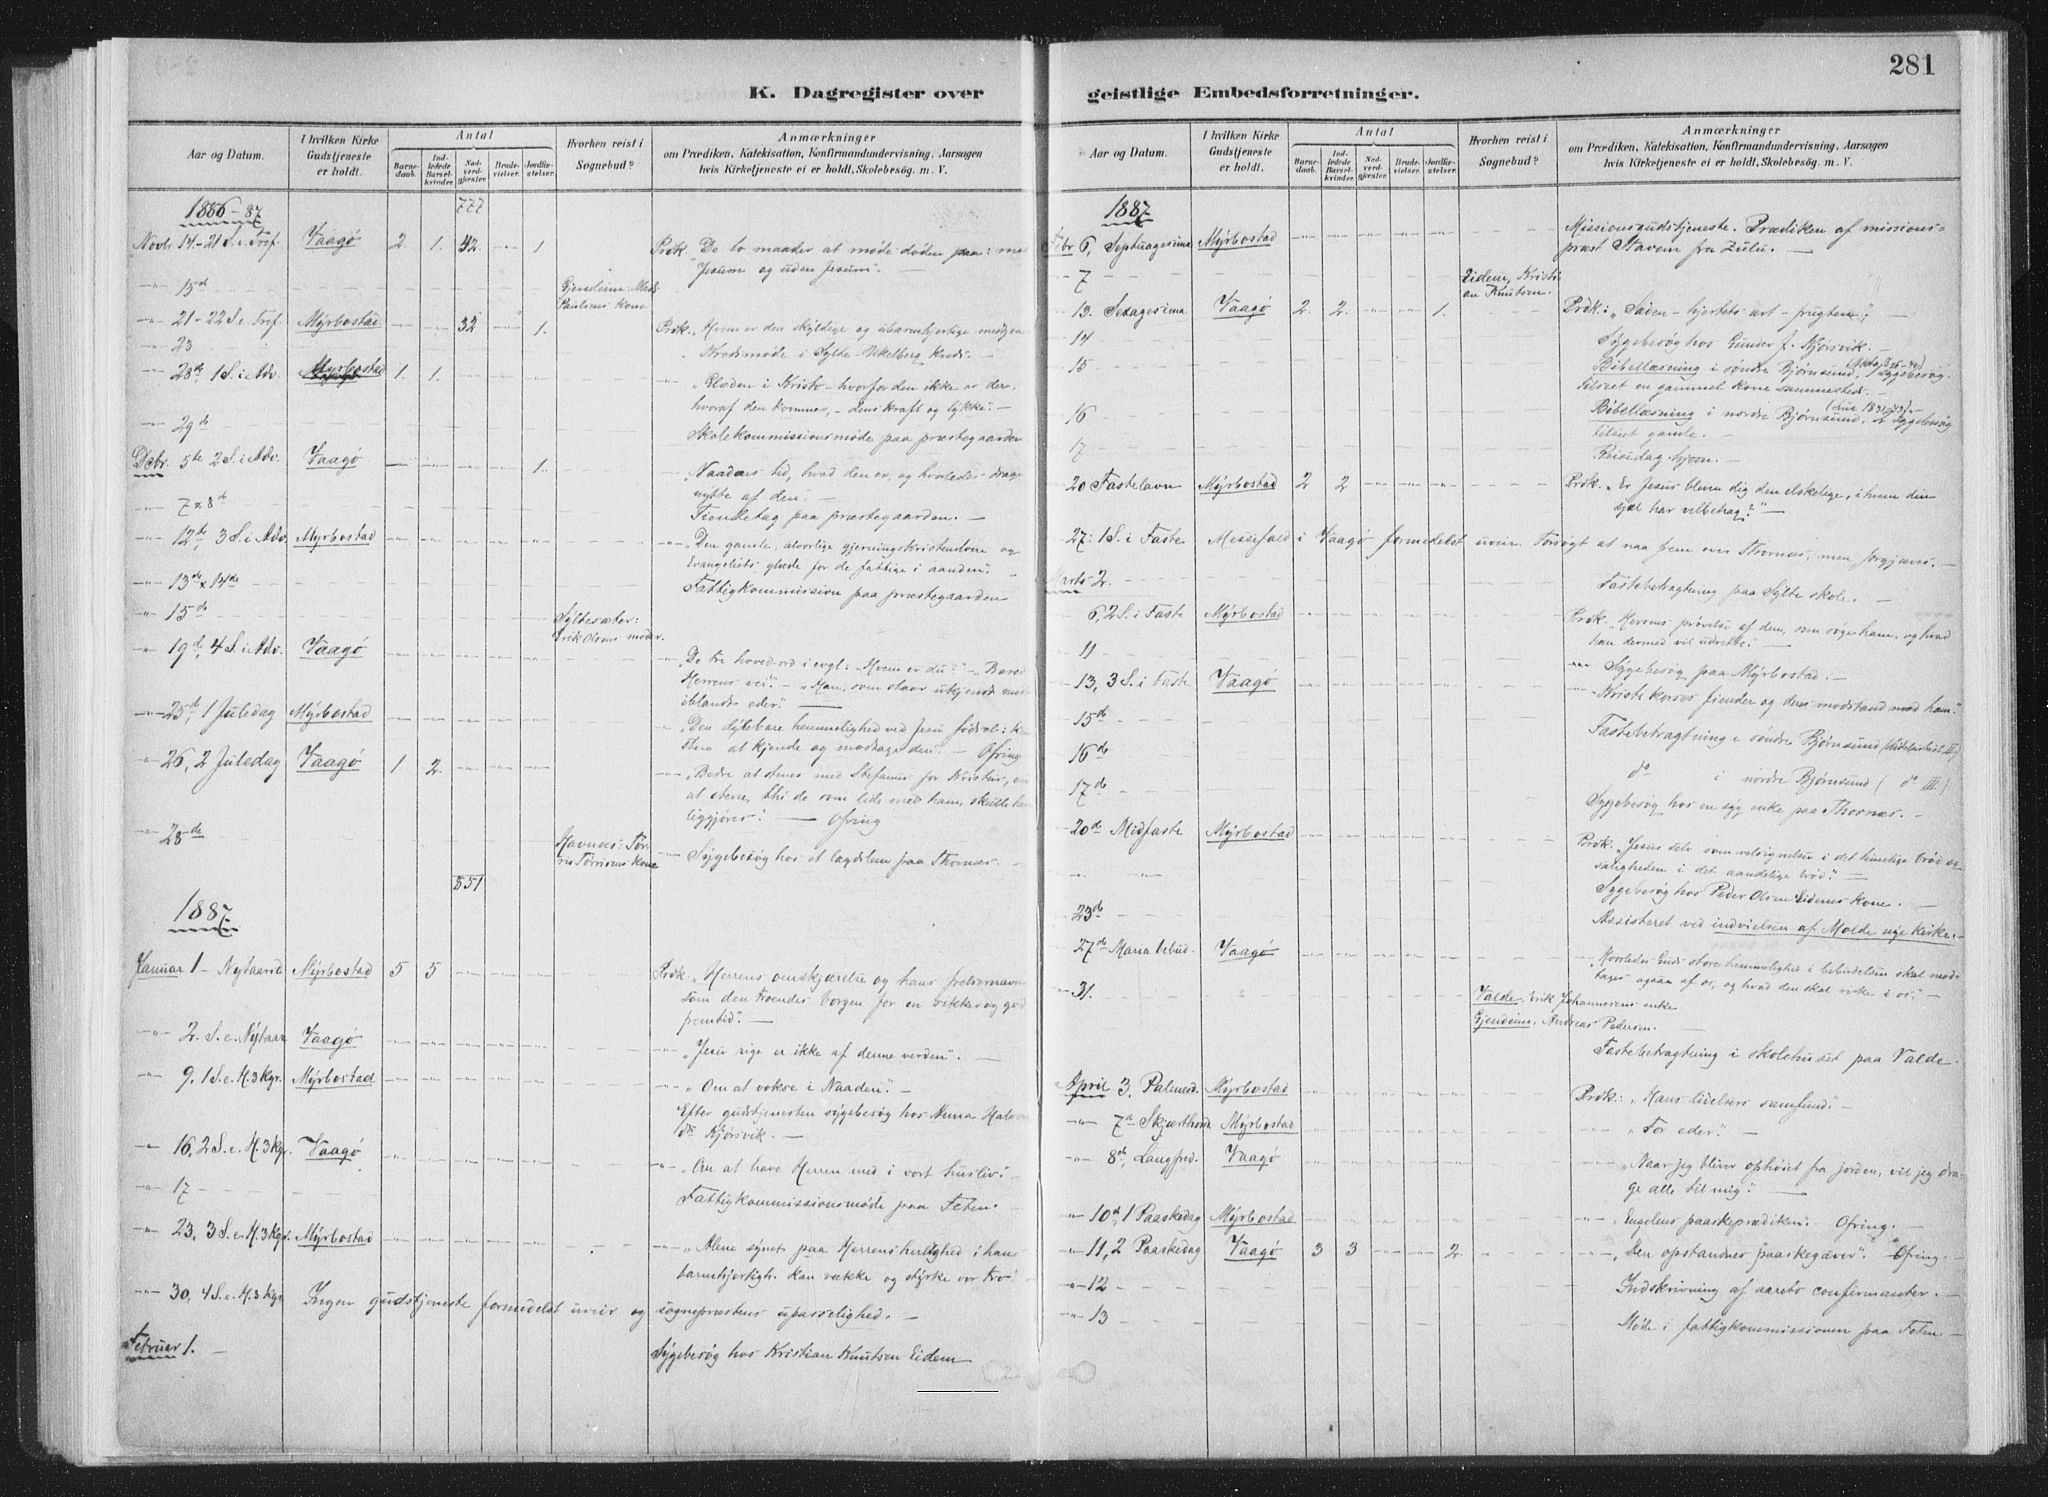 281
K. Dagregister over geistlige Embedsforretninger.
Aar og Datum.
I hvilken Kirke Gudstjeneste er holdt.
Antal
Barnedaab.
Indledede Barselkvinder.
Nadverdgjester.
Brudevielser.
Jordfæstelser.
Hvorhen reist i Sognebud?
Anmærkninger
om Prædiken, Katekisation, Konfirmandundervisning, Aarsagen
hvis Kirketjeneste ei er holdt, Skolebesøg, m. V.
1886-87 777
Novbr. 14-21 S. e. Tref. Vaagø 2. 1. 42. 1 Prdk. "De to maader at møde døden paa: med
Jesum og uden Jesum".
15d Gjendeim: Mads
Paulsens Kone
21-22 S. e. Tref. Myrbostad 32 1. Prdk. "Hvem er den skyldige og ubarmhjertige medtjener
23 Kredsmøde i Sylte-Ukelberg Kreds.
28de, 1 S. i Adv. Myrbostad 1. 1. "Glæden i Kristo - hvorfor den ikke er der,
hvoraf den kommer, - dens kraft og lykke".
29de Skolekommissionsmøde paa præstegaarden
Debr. 5te 2 S. i Adv. Vaagø 1. "Naadens tid, hvad den er, og hvorledes drage
nytte af den".
7 & 8de Tiendetag paa præstegaarden.
12te, 3 S. i Adv. Myrbostad "Den ganske, alvorlige gjerningskristendom og
Evangeliets glæde for de fattige i aanden".
13de & 14de Fattigkommission paa præstegaarden
15de Syltesæter:
Erik Olsens moder.
19de, 4 S. i Adv. Vaagø "De tre hoved-ord i evgl: "Hvem er du?" - "Bered
Herrens vei". - "Han, som staar ukjendt midt
iblandt eder".
25de, 1 Juledag Myrbostad "Den dyrebare hemmelighed ved Jesu fødsel:
at kjende og modtage den". - Ofring
26, 2 Juledag Vaagø 1 2. "Bedre at stenes med Stefanus for Kristus, end
at stene, thi de som lide med ham, skulle
liggjøres". Ofring
28de Havnes: Tør-
ris Tørrisens kone Sygebesøg hos et lægdslem paa Thornæs.
851
1887
Januar 1 - Nytaarsd Myrbostad 5 5 Prdk. "Herrens omskjærelse og hans frelsernavn
som den troendes borgen for en sikker og god
fremtid".
2. S. e. Nytaar Vaagø "Jesu rige er ikke af denne verden".
9. 1 S. e. H. 3 kgr. Myrbostad "Om at vokse i Naaden".
Efter gudstjenesten sygebesøg hos
Kjørsvik.
16. 2 S. e. H. 3 kgr. Vaagø "Om at have Herren med i vort husliv".
17 Fattigkommissionsmøde paa Feten.
23. 3 S. e. H. 3 kgr. Myrbostad "Alene synet paa Herrens herlighed i hans
barmhjertigh. kan vække og styrke vor tro"
30, 4 S. e. H. 3 kgr. Ingen gudstjeneste formedelst uveir og sognepræstens upasselighed.
Februar 1. Sygebesøg hos Kristian Knutsen Eidem
Aar og Datum.
I hvilken Kirke Gudstjeneste er holdt.
Antal
Barnedaab.
Indledede Barselkvinder.
Nadverdgjester.
Brudevielser.
Jordfæstelser.
Hvorhen reist i Sognebud?
Anmærkninger
om Prædiken, Katekisation, Konfirmandundervisning, Aarsagen
hvis Kirketjeneste ei er holdt, Skolebesøg, m. V.
1887
Febr 6, Septuagesima Myrbostad Missionsgudstjeneste. Prædiken af missions-
præst Stavem fra Zulu.
7 Eidem, Kristi-
an Knutsen.
13. Sexagesima Vaagø 2. 2. 1. Prdk: "Sæden - hjertets art - frugten".
14 Sygebesøg hos Gunder J. Kjørsvik.
15 Bibellæsning i søndre Bjørnsund, Sygebesøg
tilseet en gammel kone sammesteds.
16 Bibellæsning i nordre Bjørnsund, 2 Sygebesøg
tilseet gamle.
17 Reisedag hjem.
20 Fastelavn Myrbostad 2 2 Prdk. "Er Jesus bleven dig den elskelige, i hvem din
sjæl har velbehag?"
27: 1 S. i Faste Messefald i Vaagø formedelst uveir. Forsøgt at naa frem over Thornæs, men forgjæves.
Marts 2. Fastebetragtning paa Sylte skole.
6, 2 S. i Faste Myrbostad Prdk. "Herrens prøvelse af dem, som søge ham, og hvad
han dermed vil udrette.
11 Sygebesøg paa Myrbostad.
13, 3 S. i Faste Vaagø "Kristi korses fiender og deres modstand mod ham".
15de Fastebetragtning i søndre Bjørnsund
16de do i nordre Bjørnsund ( do III)
17de Sygebesøg hos en syg enke paa Thornæs.
20de Midfaste Myrbostad Prdk: "Jesus selv som velsignelsen i det timelige brød og
saligheden i det aandelige brød".
" " Sygebesøg hos Peder Olsen Eidems kone.
23de Assisteret ved indvielsen af Molde nye kirke.
27de Maria bebud. Vaagø "Hvorledes Guds store hemmelighed i bebudelsen skal mod-
tages ogsaa af os, og hvad den skal virke i os".
31. Valde. Erik Johannesens enke
Gjendeim, Andreas Pedersen.
Fastebetragtning i skolehuset paa Valde
April 3. Palmesd. Myrbostad Prdk: "Hans lidelsers samfund".
7de Skjærthorsd. Myrbostad "For eder".
8de, Langfred. Vaagø "Naar jeg bliver ophøiet fra jorden, vil jeg dra-
ge alle til mig".
10de, 1 Paaskedag Myrbostad "Engelens paaskeprædiken. Ofring.
11, 2 Paaskedag Vaagø 3 3 2. "Den opstandnes paaskegaver". Ofring.
12 Indskrivning af aarets confirmanter.
13 Møde i fattigkommissionen paa Feten